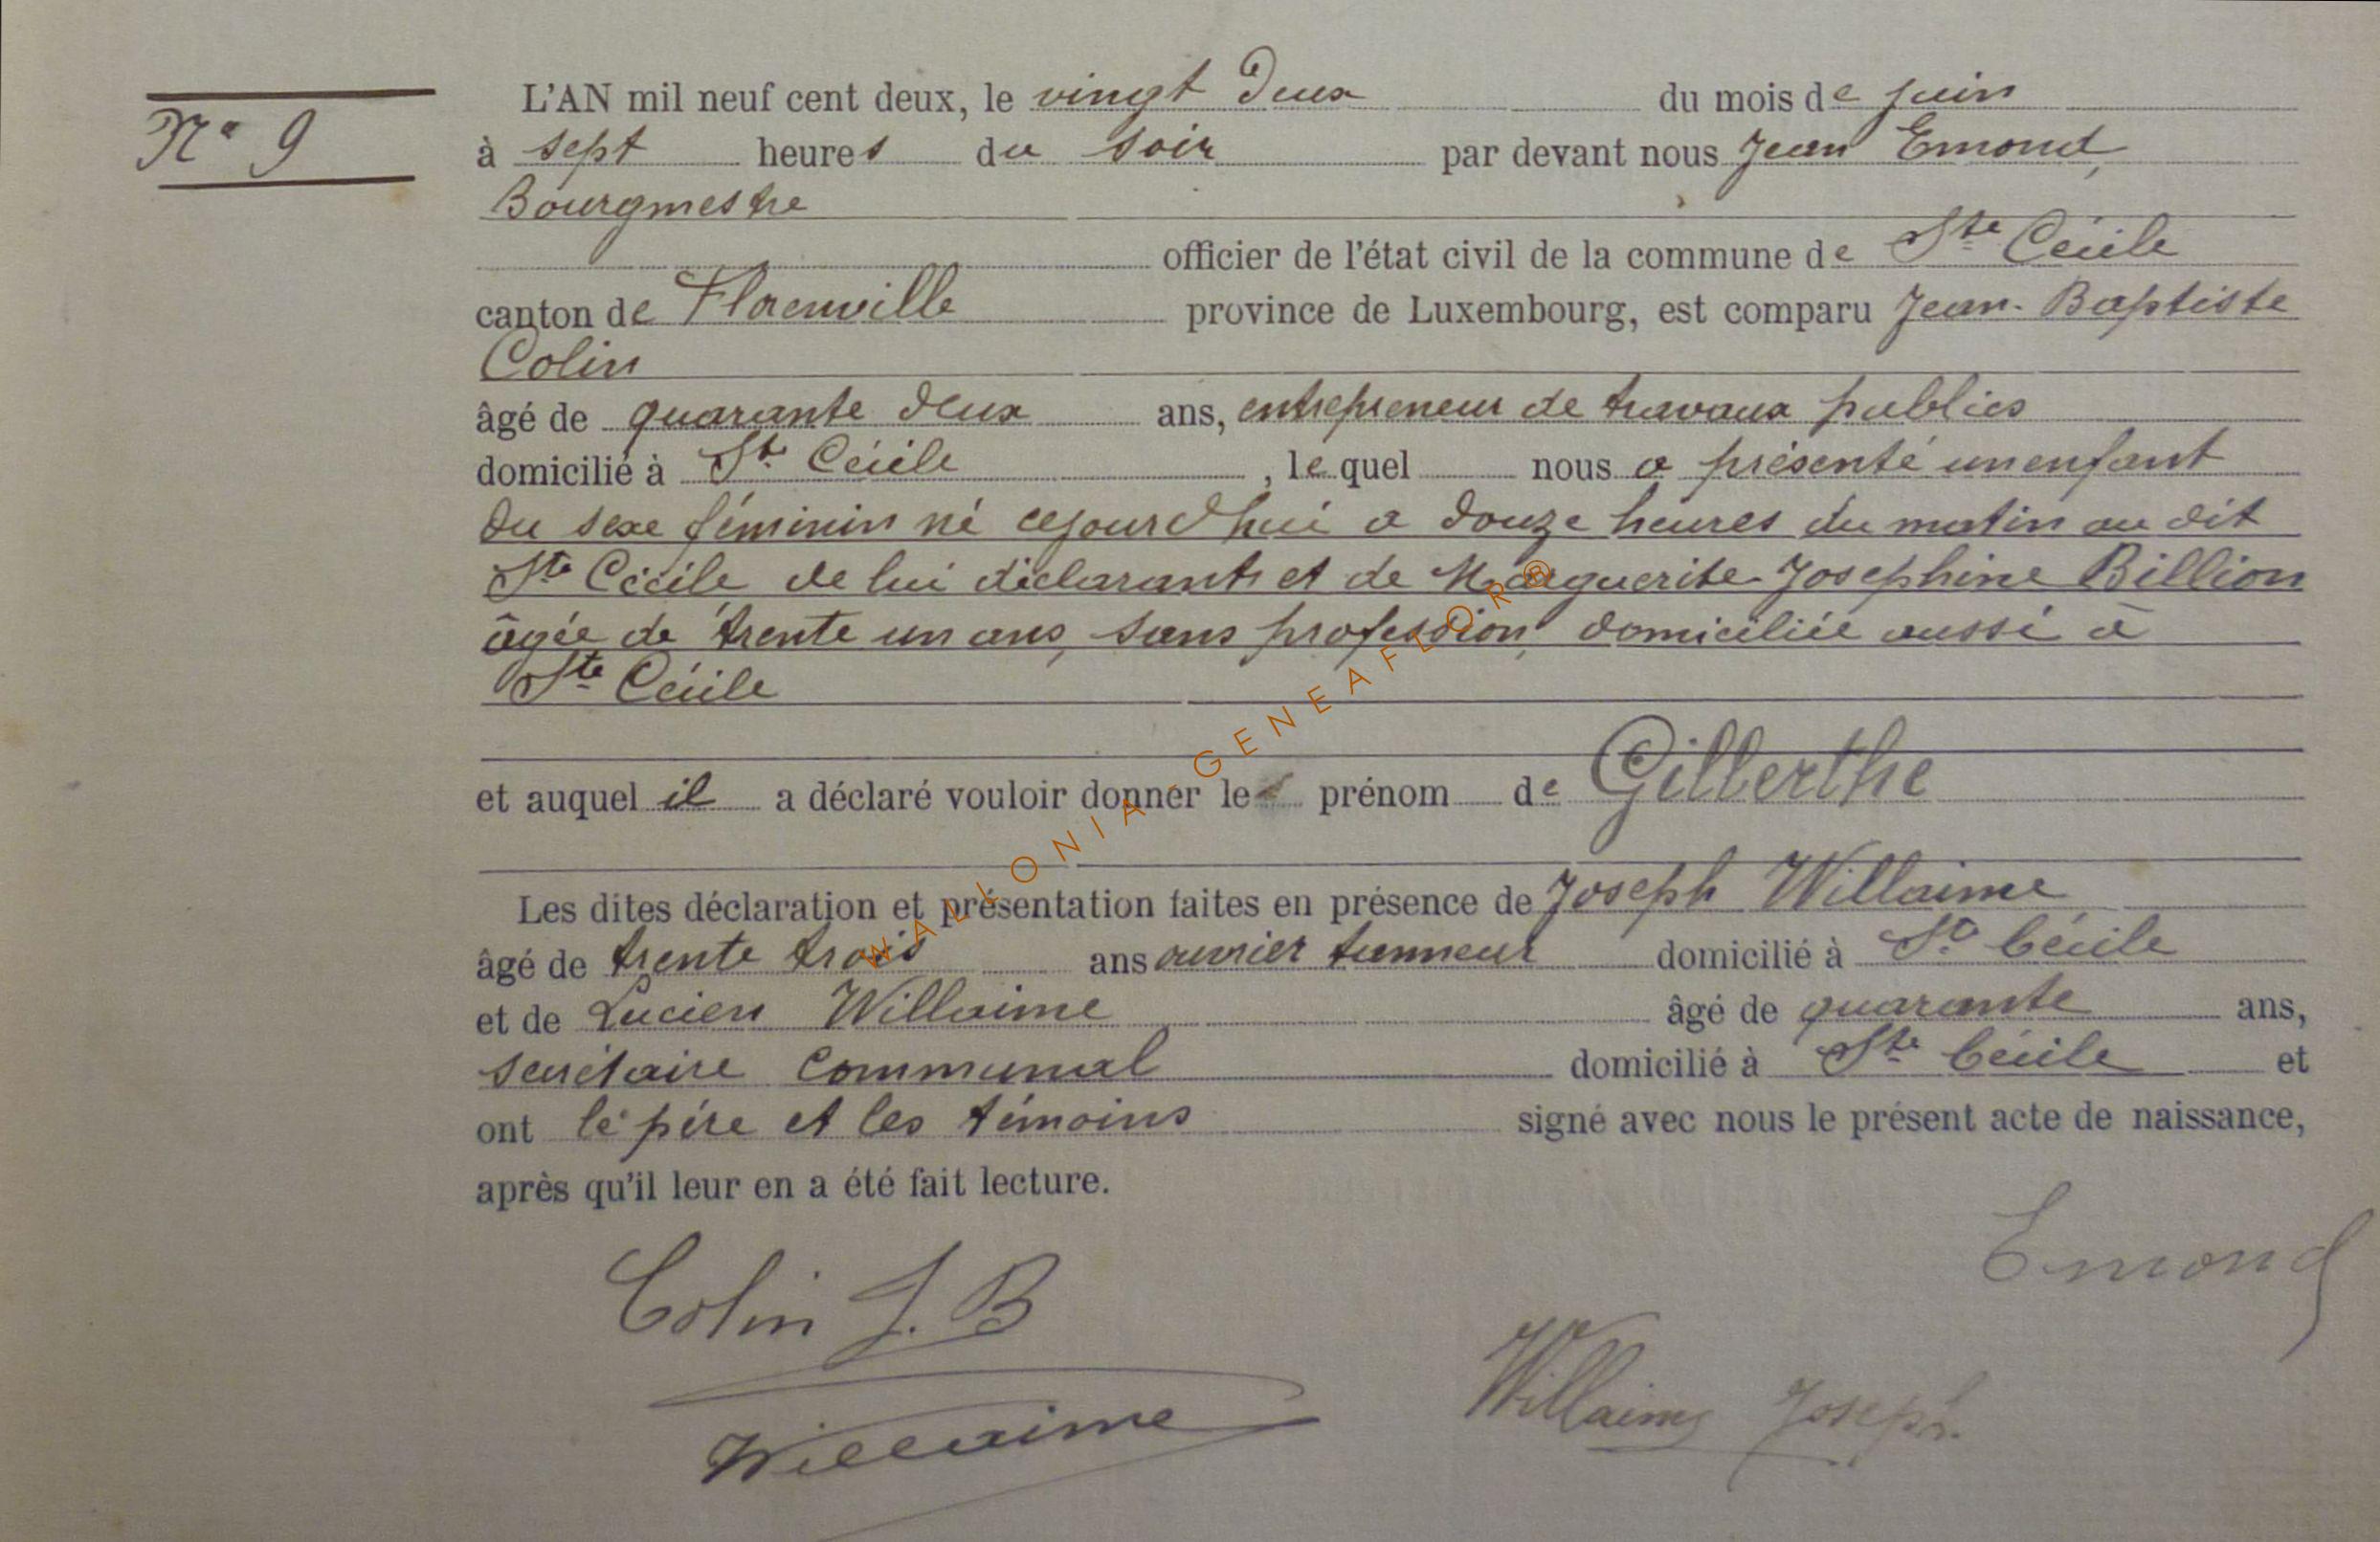 N° 9
L'AN mil neuf cent deux, le vingt deux du mois de juin
à sept heures du soir par devant nous Jean Emond,
Bourgmestre
officier de l'état civil de la commune de Ste Cécile
canton de Florenville province de Luxembourg, est comparu Jean-Baptiste
Colin
âgé de quarante deux ans, entrepreneur de travaux publics
domicilié à Ste Cécile, lequel nous a présenté un enfant
du sexe féminin né cejourd'hui a douze heures du matin au dit
Ste Cécile de lui déclarant et de Marguerite-Josephine Billion
âgée de trente un ans, sans profession, domiciliée aussi à
Ste Cécile
et auquel il a déclaré vouloir donner le prénom de Gilberthe
Les dites déclaration et présentation faites en présence de Joseph Willaime
âgé de trente trois ans ouvrier tanneur domicilié à Ste Cécile
et de Lucien Willaime âgé de quarante ans,
secrétaire communal domicilié à Ste Cécile et
ont le père et les témoins signé avec nous le présent acte de naissance,
après qu'il leur en a été fait lecture.
Emond
Colin J. B
Willaime Joseph
Willaime
WALLONIA GENEAFLOR®